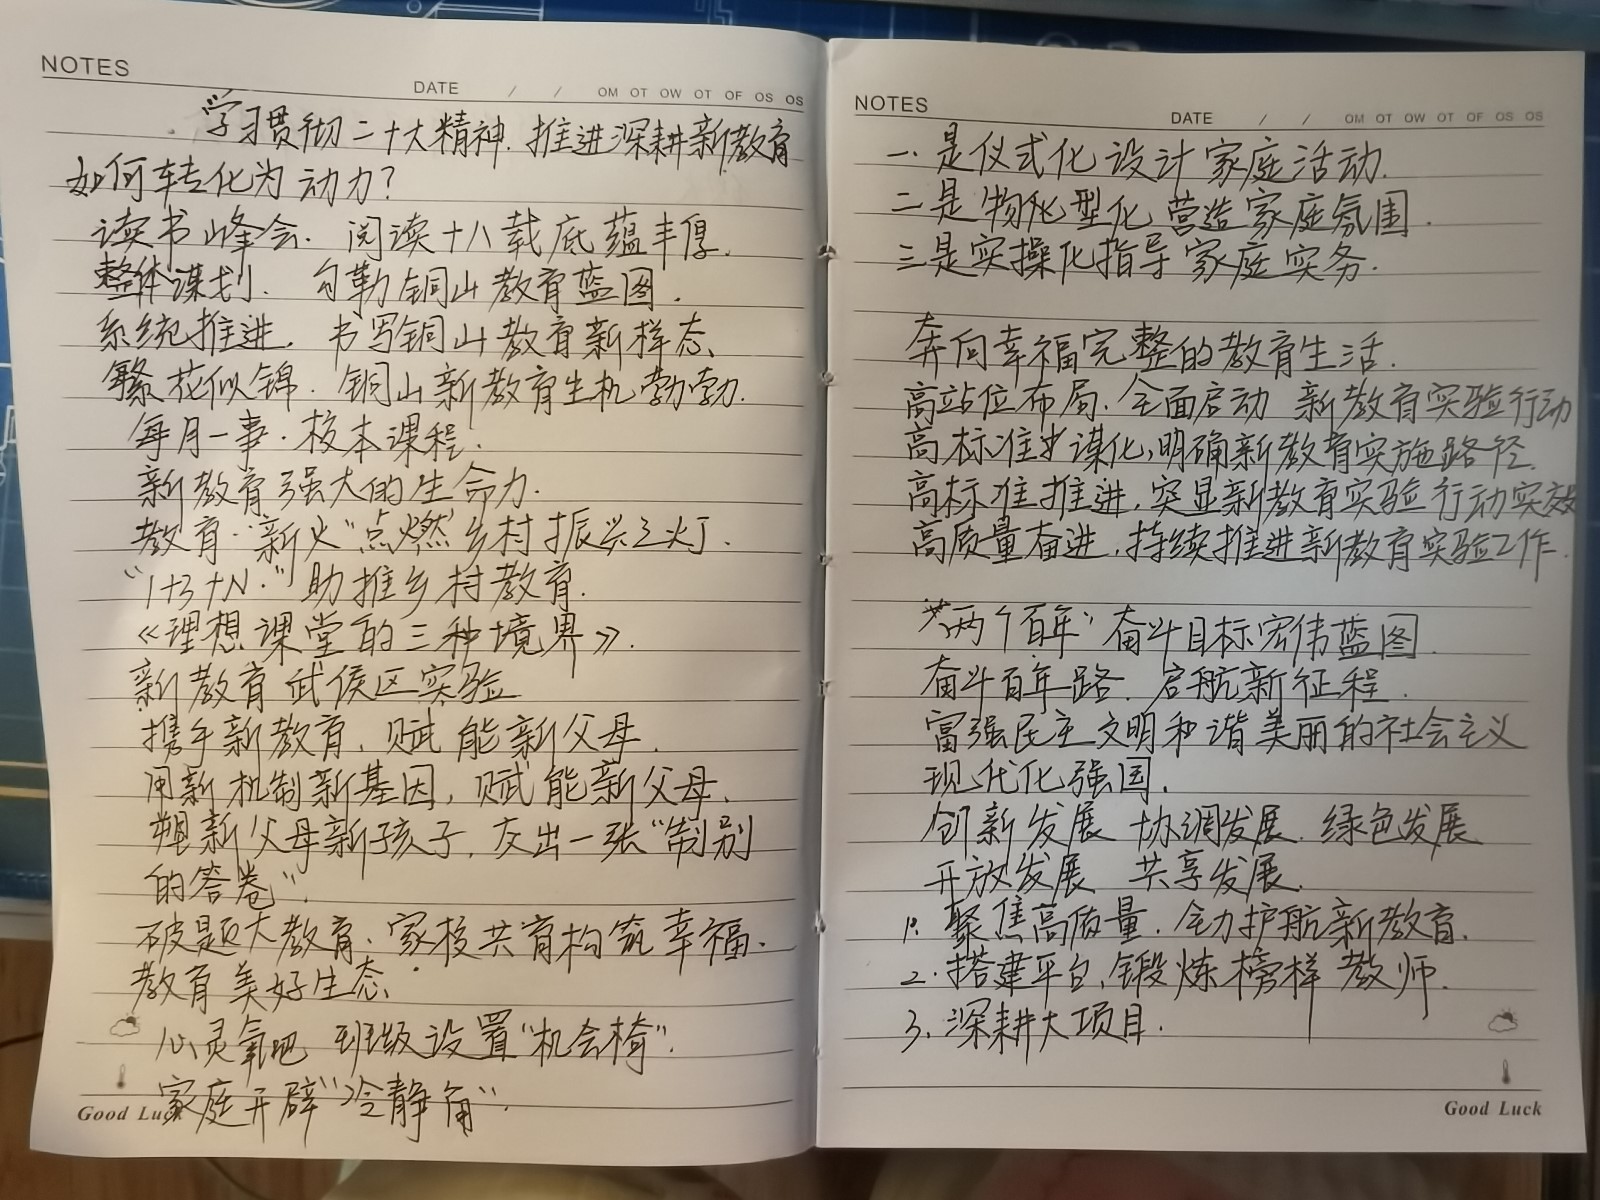 NOTES
DATE / / OM OT OW OT OF OS OS
学习贯彻二十大精神.推进深耕新教育
如何转化为动力?
读书峰会.阅读十八载底蕴丰厚.
整体谋划.勾勒铜山教育蓝图.
系统推进.书写铜山教育新样态、
繁花似锦.铜山新教育生机勃勃.
每月一事.校本课程.
新教育强大的生命力.
教育"新火"点燃乡村振兴之灯.
"1+3+N."助推乡村教育.
《理想课堂的三种境界》.
新教育武侯区实验
携手新教育.赋能新父母.
用新机制新基因,赋能新父母、
塑新父母新孩子,交出一张"制别
的答卷".
破题大教育、家校共育构筑幸福.
教育美好生态.
心灵氧吧 班级设置"机会椅".
家庭开辟"冷静角".
Good Luck
NOTES
DATE / / OM OT OW OT OF OS OS
一.是仪式化设计家庭活动.
二是物化型化营造家庭氛围.
三是实操化指导家庭实务.
奔向幸福完整的教育生活.
高站位布局、全面启动 新教育实验行动
高标准谋化,明确新教育实施路径.
高标准推进,突显新教育实验行动实效
高质量奋进,持续推进新教育实验工作.
"两个百年"奋斗目标宏伟蓝图
奋斗百年路.启航新征程.
富强民主文明和谐美丽的社会主义
现代化强国.
创新发展 协调发展.绿色发展
开放发展 共享发展.
1.聚焦高质量.全力护航新教育.
2.搭建平台,锻炼榜样教师.
3.深耕大项目.
Good Luck